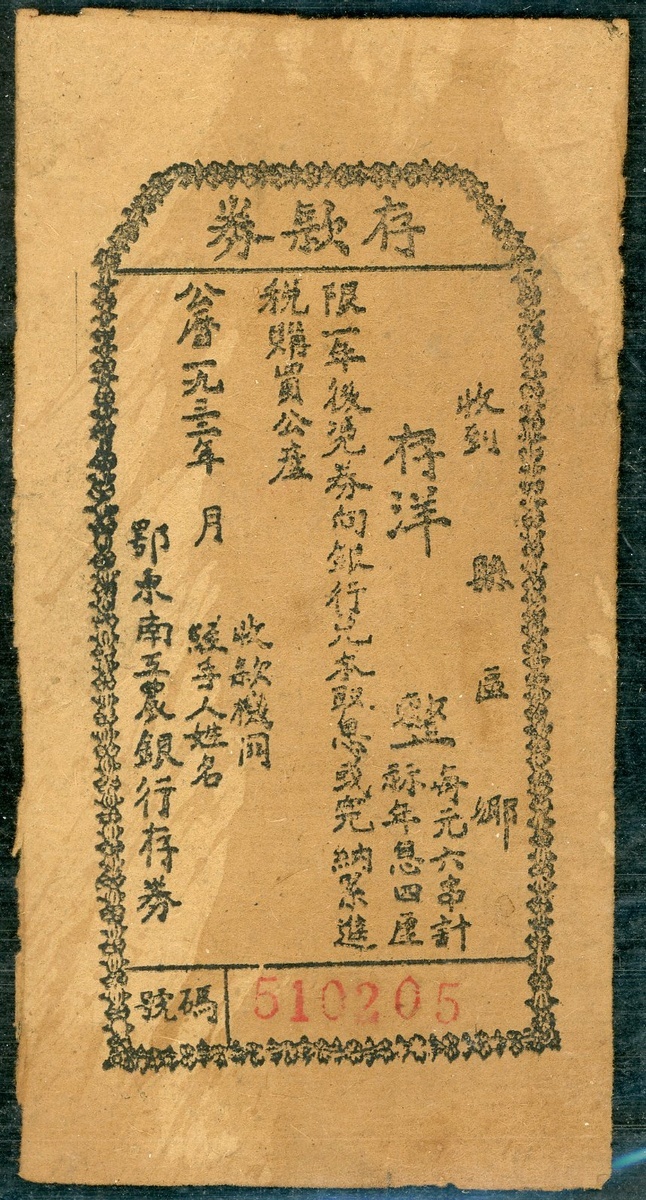 存款券
收到 縣 區 鄉
存洋 整 每元六串計
祘年息四厘
限一年後凭券向銀行兑本取息或完納累進
税購買公產
收款機関
公曆一九三三年 月 經手人姓名
鄂東南工農銀行存券
號碼 510205